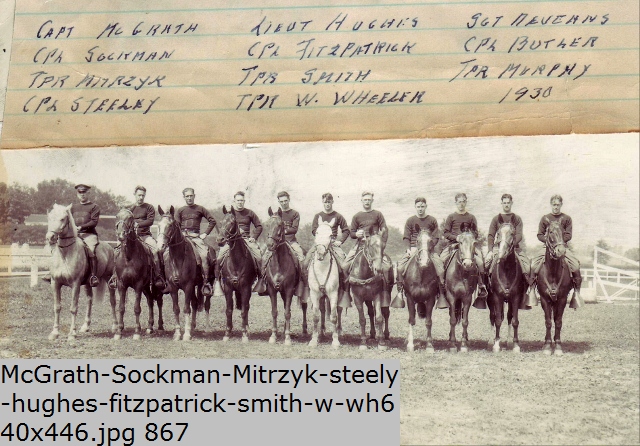 CAPT MCGRATH LIEUT HUGHES SGT NEVEANS
CPL SOCKMAN CPL FITZPATRICK CPL BUTLER
TPR MITRZYK TPR SMITH TPR MURPHY
CPL STEELEY TPR W. WHEELER 1930
McGrath-Sockman-Mitrzyk-steely
-hughes-fitzpatrick-smith-w-wh6
40x446.jpg 867